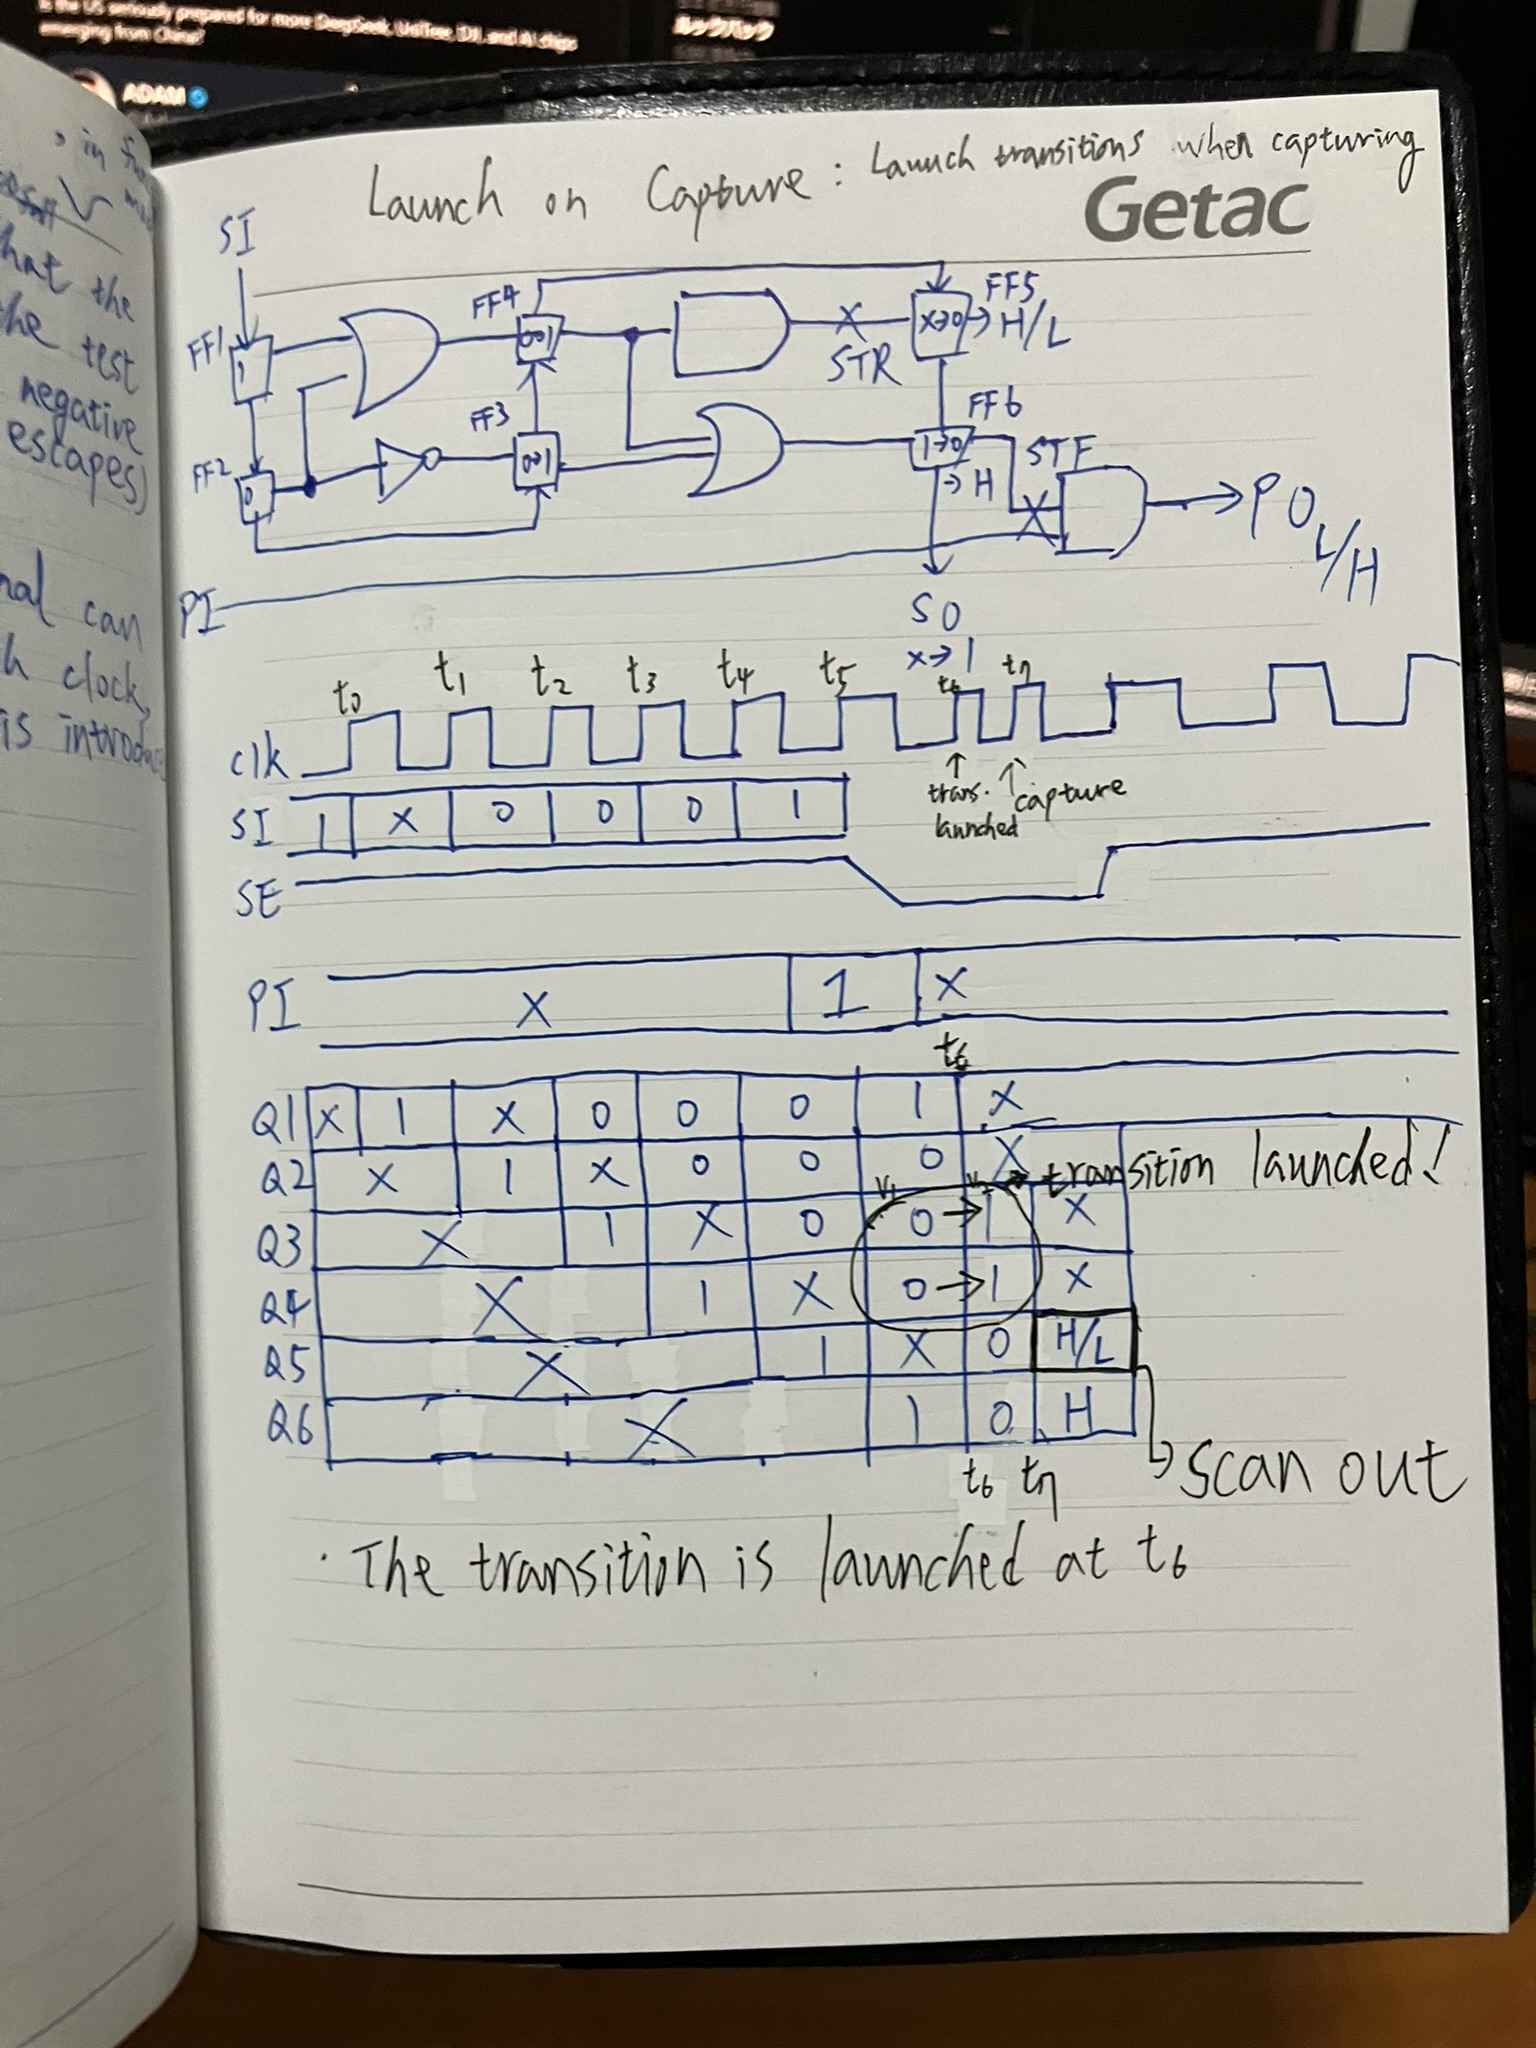 is the US seriously prepared for more DeepSeek, UniTree, DJI, and AI chips
emerging from China?
ルックバック
ADAM
in
that the
the test
negative
escapes)
nal can
h clock,
is introduc
Launch on Capture : Launch transitions when capturing
Getac
SI
FF1 1 FF4 0→1 STR X→0 FF5 → H/L
FF2 0 FF3 0→1 1→0 FF6 → H STF → PO L/H
PI
SO
X→1
t0 t1 t2 t3 t4 t5 t6 t7
clk
↑ trans. launched ↑ capture
SI 1 X 0 0 0 1
SE
PI X 1 X
t6
Q1 X 1 X 0 0 0 1 X
Q2 X 1 X 0 0 0 X
V1 V2 → transition launched!
Q3 X 1 X 0 0→1 X
Q4 X 1 X 0→1 X
Q5 X 1 X 0 H/L
Q6 X 1 0 H
t6 t7 → scan out
· The transition is launched at t6